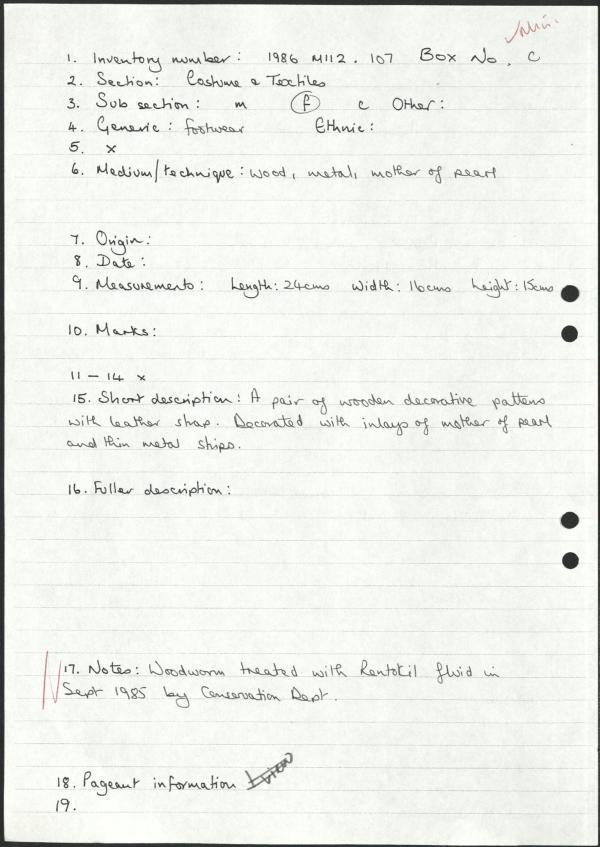 1. Inventory number: 1986 M112.107 Box No. C
2. Section: Costume & Textiles
3. Sub section: m f c Other:
4. Generic: footwear Ethnic:
5. x
6. Medium/technique: wood, metal, mother of pearl
7. Origin:
8. Date:
9. Measurements: Length: 24cms Width: 16cms height: 15cms
10. Marks:
11 - 14 x
15. Short description: A pair of wooden decorative pattens
with leather strap. Decorated with inlays of mother of pearl
and thin metal strips.
16. Fuller description:
17. Notes: Woodworm treated with Rentokil fluid in
Sept 1985 by Conservation Dept.
18. Pageant information
19.